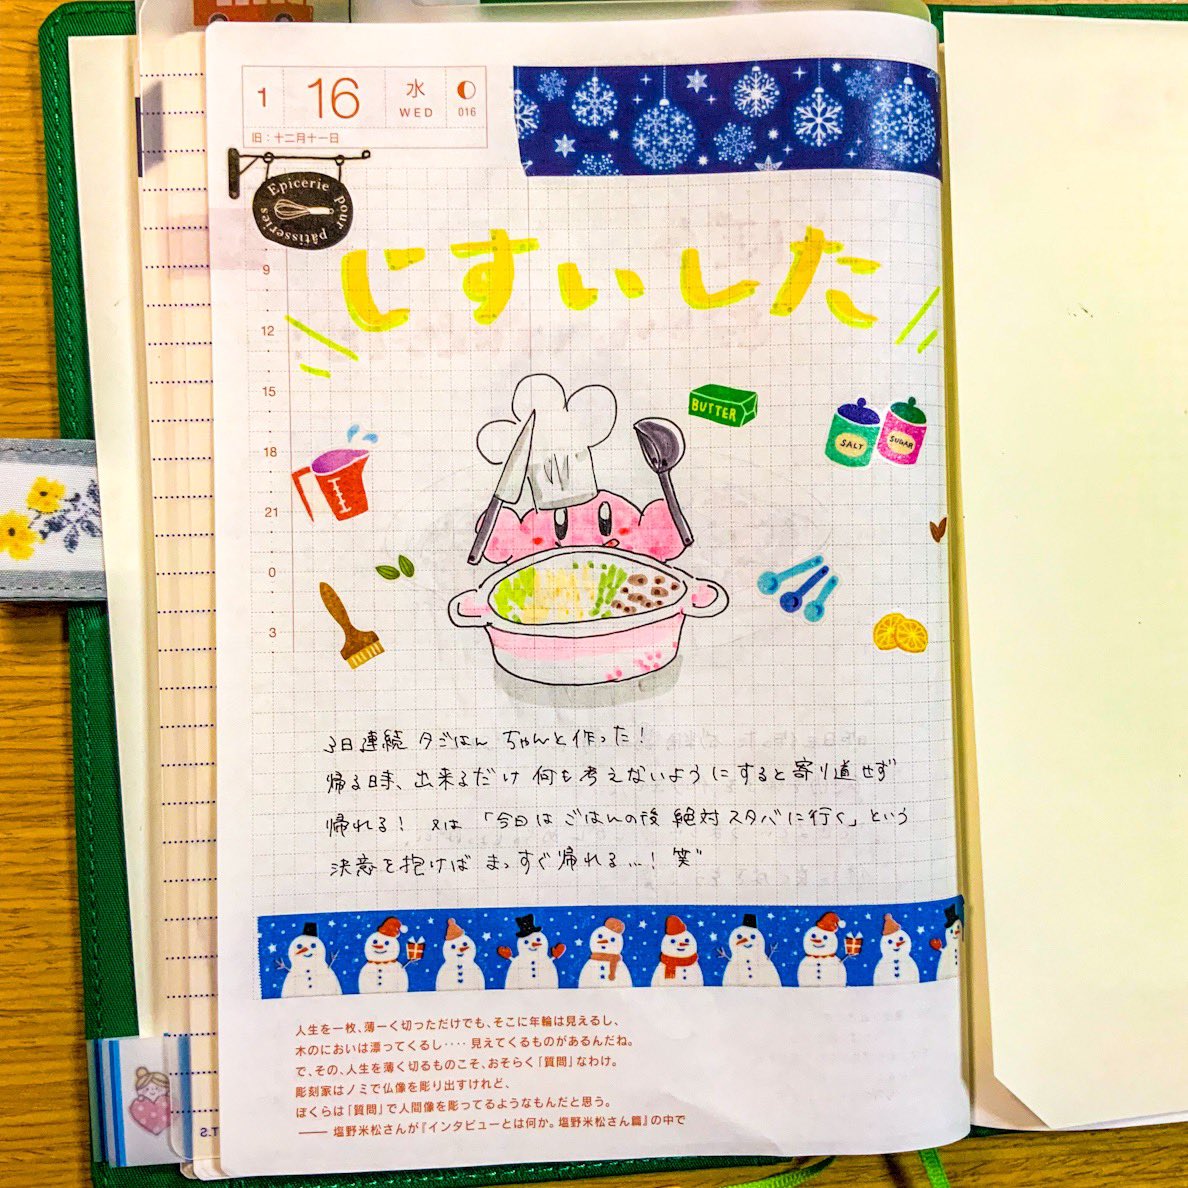 1 16 水 WED 016
旧：十二月十一日
Epicerie pour pâtisseries
じすいした
9
12
15
18
21
0
3
BUTTER
SALT
SUGAR
3日連続 夕ごはん ちゃんと作った！
帰る時、出来るだけ 何も考えないようにすると寄り道せず
帰れる！ 又は 「今日は ごはんの後 絶対スタバに行く」という
決意を抱けば まっすぐ帰れる…！ 笑
人生を一枚、薄ーく切っただけでも、そこに年輪は見えるし、
木のにおいは漂ってくるし‥‥ 見えてくるものがあるんだね。
で、その、人生を薄く切るものこそ、おそらく「質問」なわけ。
彫刻家はノミで仏像を彫り出すけれど、
ぼくらは「質問」で人間像を彫ってるようなもんだと思う。
—— 塩野米松さんが『インタビューとは何か。塩野米松さん篇』の中で